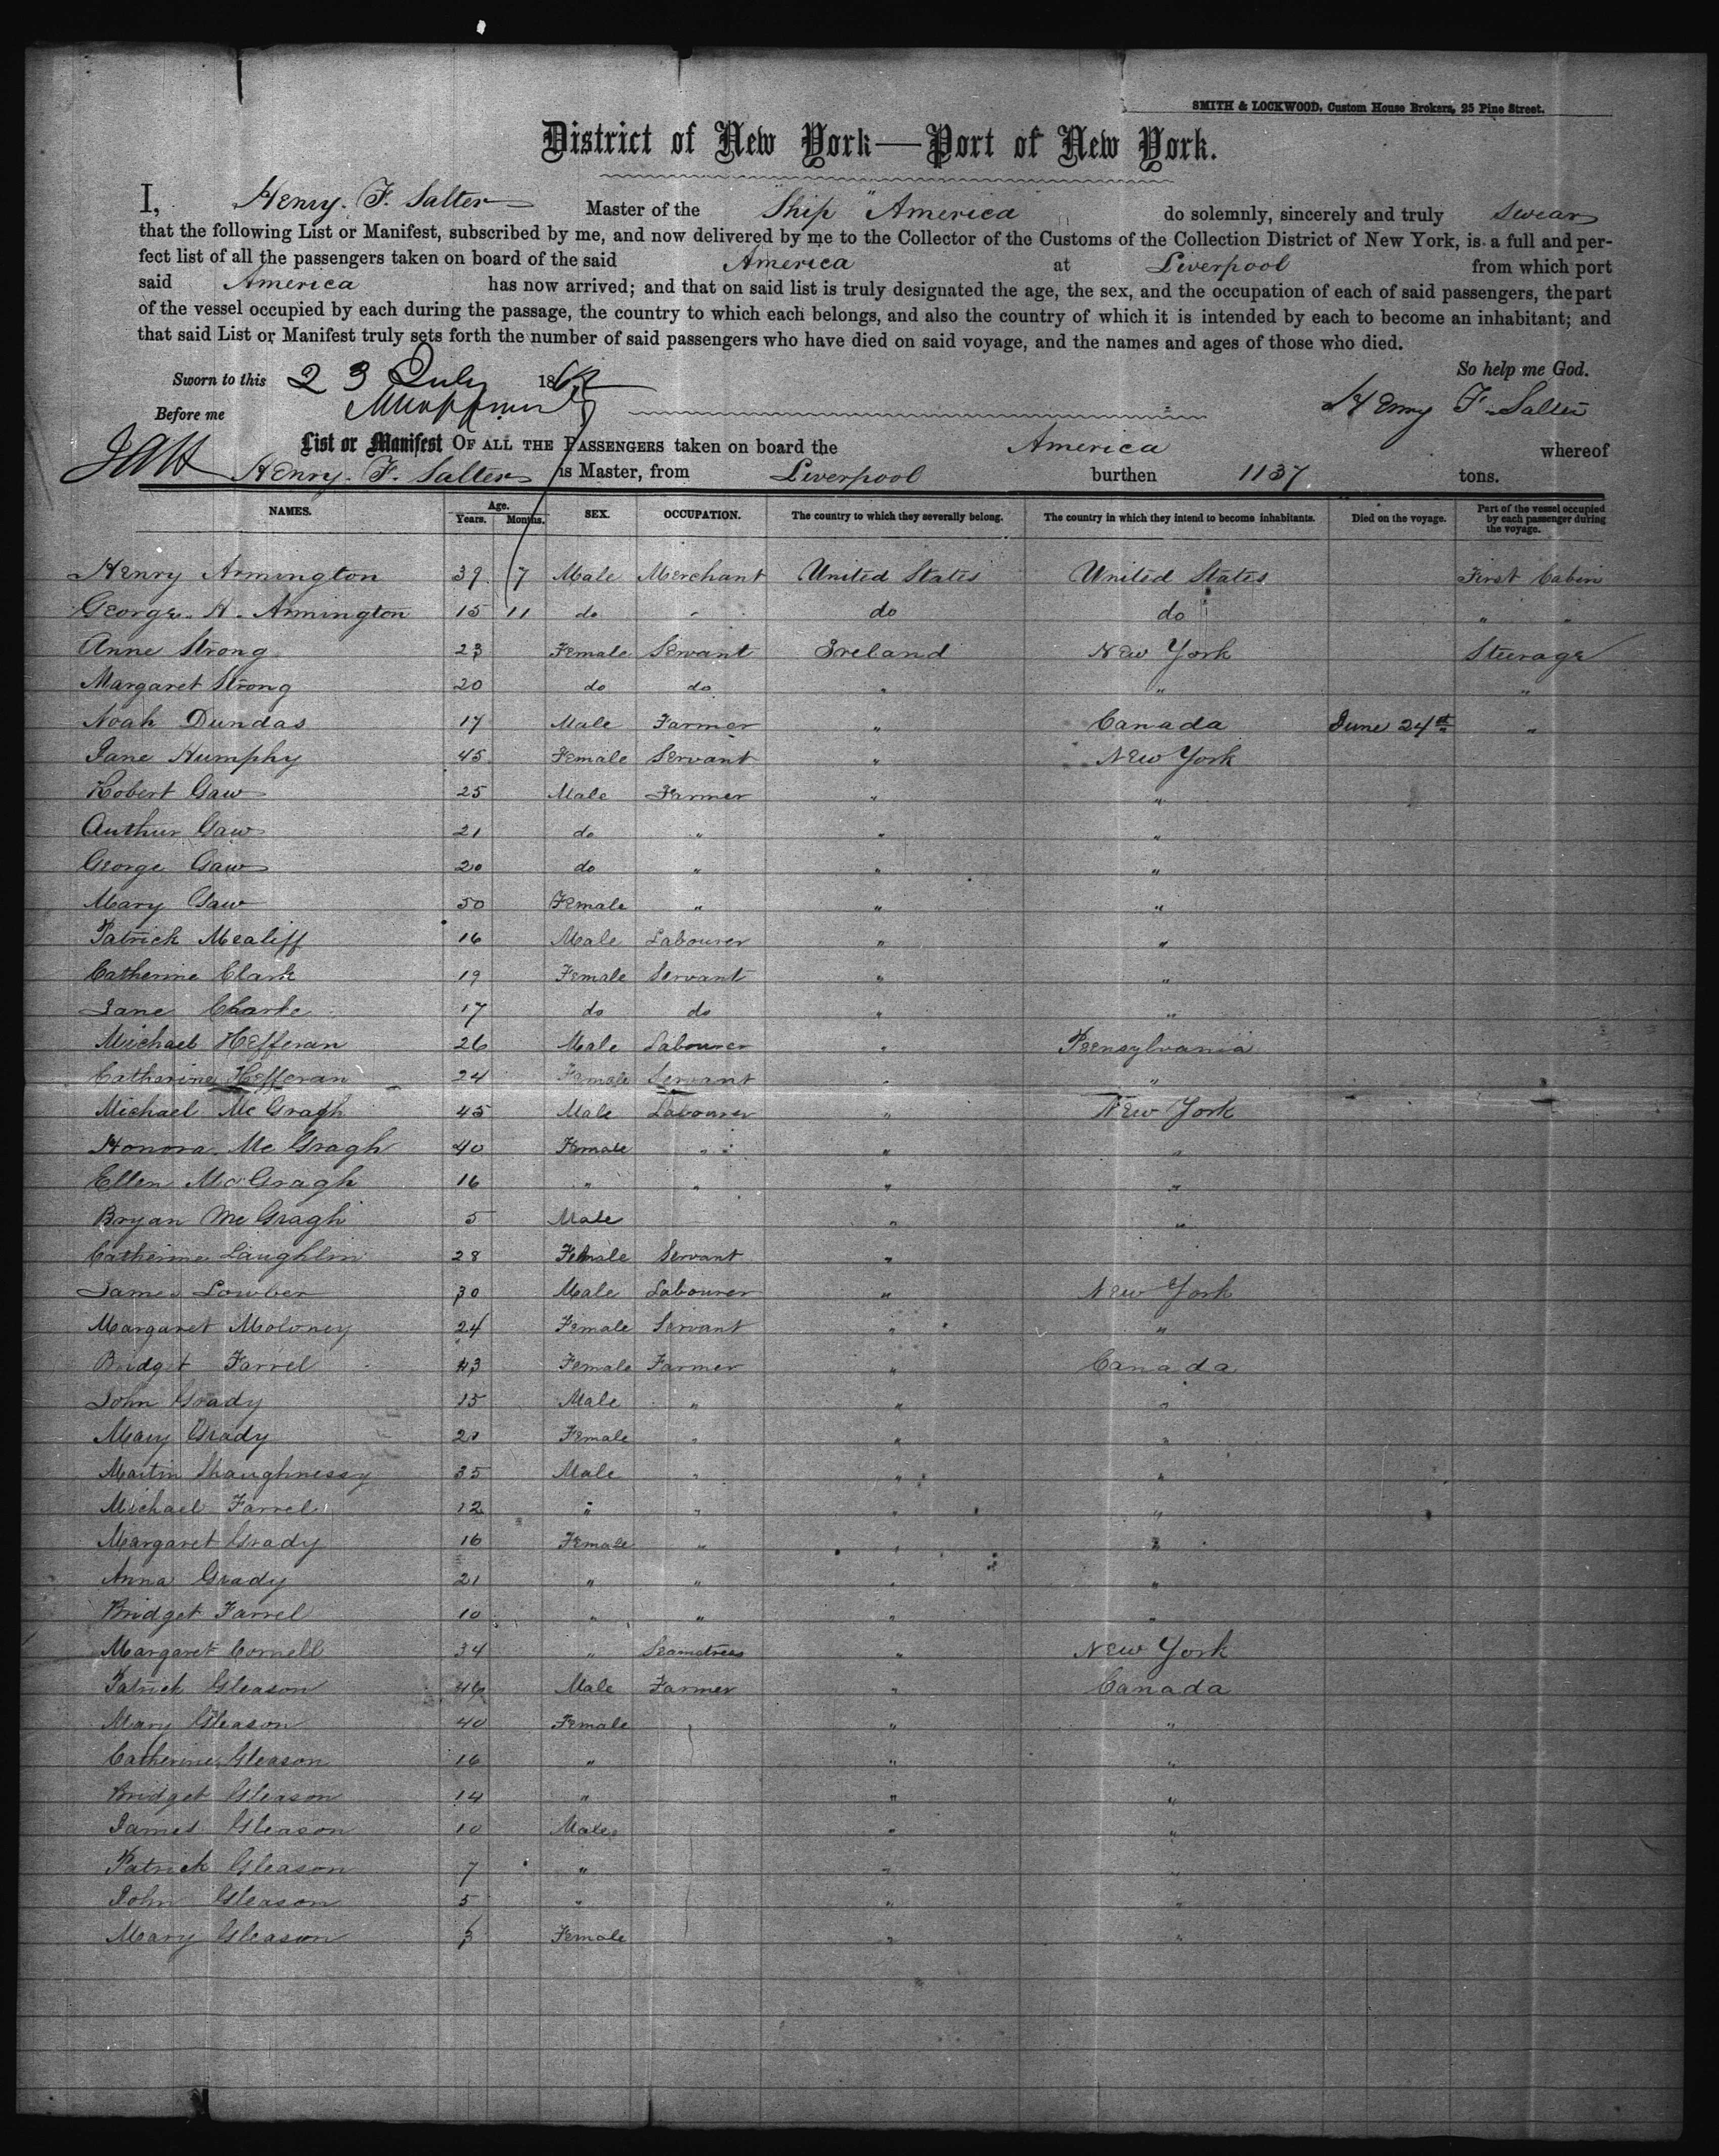 SMITH & LOCKWOOD, Custom House Brokers, 25 Pine Street.
District of New York—Port of New York.
I, Henry. F. Salter Master of the "Ship" America do solemnly, sincerely and truly swear
that the following List or Manifest, subscribed by me, and now delivered by me to the Collector of the Customs of the Collection District of New York, is a full and per-
fect list of all the passengers taken on board of the said America at Liverpool from which port
said America has now arrived; and that on said list is truly designated the age, the sex, and the occupation of each of said passengers, the part
of the vessel occupied by each during the passage, the country to which each belongs, and also the country of which it is intended by each to become an inhabitant; and
that said List or Manifest truly sets forth the number of said passengers who have died on said voyage, and the names and ages of those who died.
So help me God.
Sworn to this 23 July 186
Before me Henry F. Salter
List or Manifest OF ALL THE PASSENGERS taken on board the America whereof
Henry. F. Salter is Master, from Liverpool burthen 1137 tons.
NAMES. Age. Years. Months. SEX. OCCUPATION. The country to which they severally belong. The country in which they intend to become inhabitants. Died on the voyage. Part of the vessel occupied by each passenger during the voyage.
Henry Armington 39 7 Male Merchant United States United States First Cabin
George. H. Armington 15 11 do " do do " "
Anne Strong 23 Female Servant Ireland New York Steerage
Margaret Strong 20 do do " " "
Noah Dundas 17 Male Farmer " Canada June 24st "
Jane Humphy 45 Female Servant " New York
Robert Gaw 25 Male Farmer " "
Authur Gaw 21 do " " "
George Gaw 20 do " " "
Mary Gaw 50 Female " " "
Patrick Mealiff 16 Male Labourer " "
Catherine Clark 19 Female Servant " "
Jane Clarke 17 do do " "
Michael Hefferan 26 Male Labourer " Pensylvania
Catherine Hefferan 24 Female Servant " "
Michael McGragh 45 Male Labourer " New York
Honora McGragh 40 Female " " "
Ellen McGragh 16 " " " "
Bryan McGragh 5 Male " "
Catherine Laughlin 28 Female Servant "
James Lowber 30 Male Labourer " New York
Margaret Moloney 24 Female Servant " "
Bridget Farrel 43 Female Farmer " Canada
John Grady 15 Male " " "
Mary Grady 20 Female " " "
Martin Shaughnessy 35 Male " " "
Michael Farrel 12 " " " "
Margaret Grady 16 Female " " "
Anna Grady 21 " " " "
Bridget Farrel 10 " " " "
Margaret Cornell 34 " Seamstress " New York
Patrick Gleason 46 Male Farmer " Canada
Mary Gleason 40 Female " "
Catherine Gleason 16 " " "
Bridget Gleason 14 " " "
James Gleason 10 Male " "
Patrick Gleason 7 " " "
John Gleason 5 " " "
Mary Gleason 3 Female " "